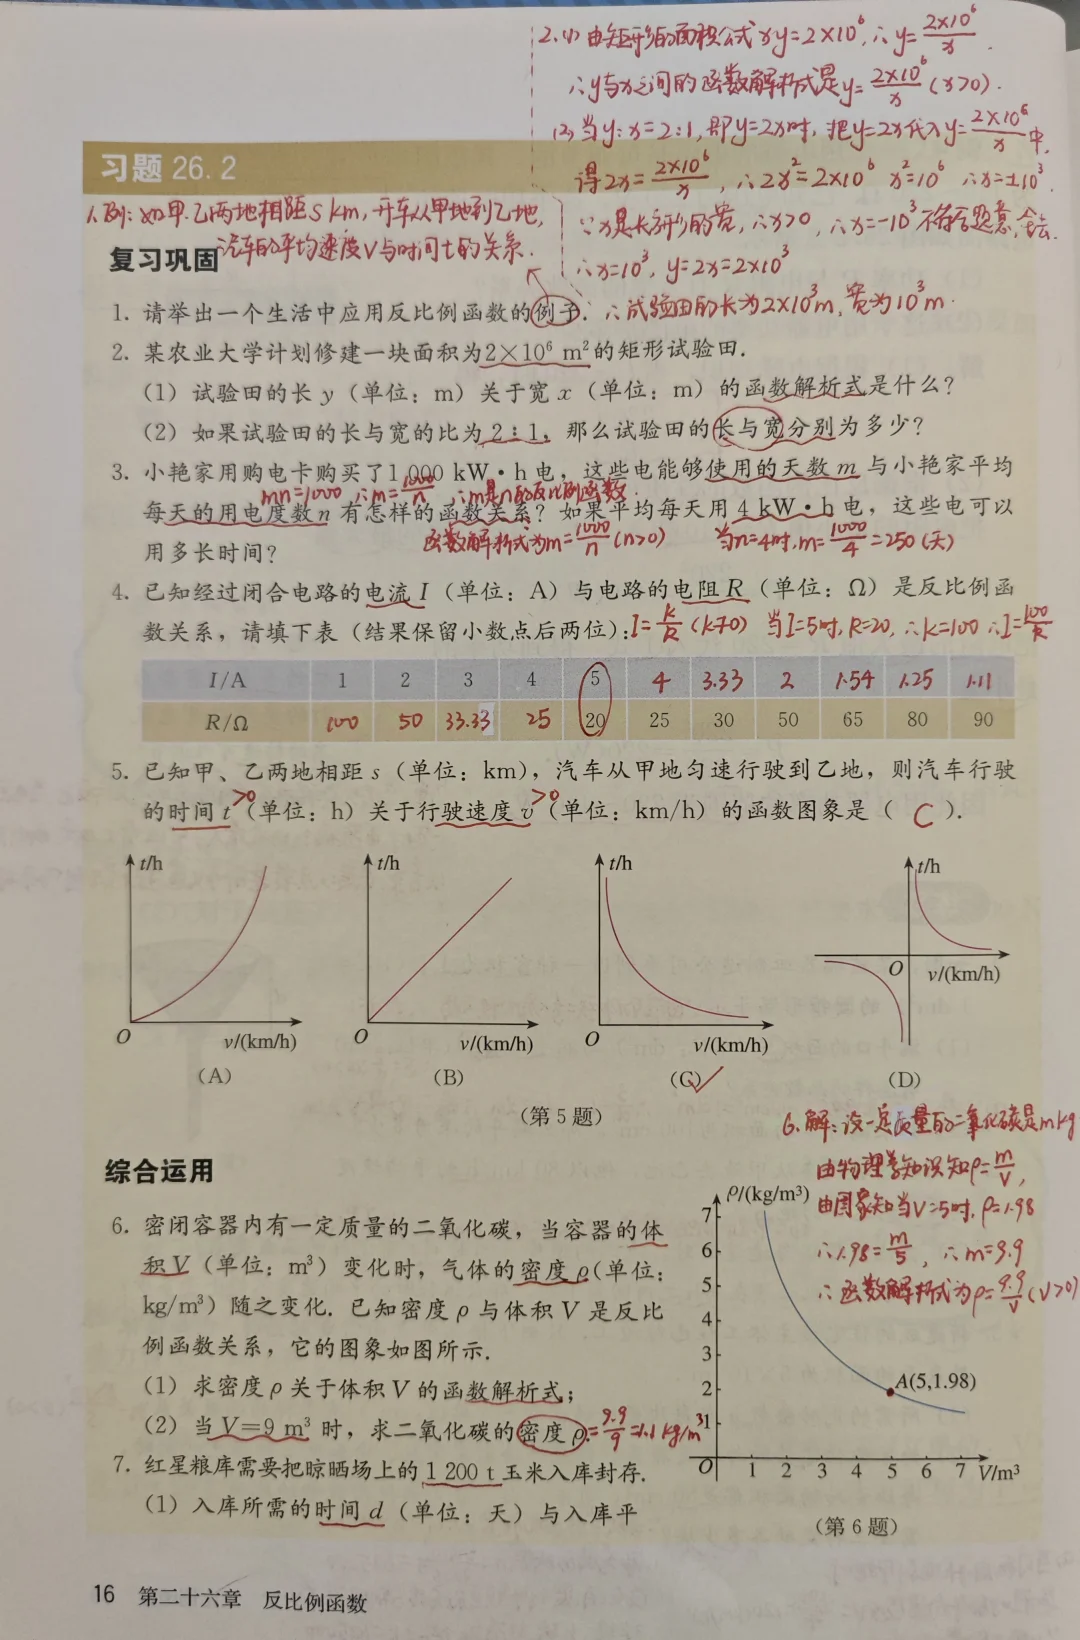 2.(1) 由矩形的面积公式xy=2×10⁶,∴y=2×10⁶/x.
∴y与x之间的函数解析式是y=2×10⁶/x (x>0).
(2)当y:x=2:1,即y=2x时,把y=2x代入y=2×10⁶/x中,
得2x=2×10⁶/x,∴2x²=2×10⁶ x²=10⁶ ∴x=±10³.
∵x是长方形的宽,∴x>0,∴x=-10³不符合题意,舍去.
∴x=10³, y=2x=2×10³
∴试验田的长为2×10³m,宽为10³m.
习题 26.2
1.例:如甲.乙两地相距s km,开车从甲地到乙地,
汽车的平均速度v与时间t的关系.
复习巩固
1. 请举出一个生活中应用反比例函数的例子.
2. 某农业大学计划修建一块面积为2×10⁶ m²的矩形试验田.
(1) 试验田的长 y (单位: m) 关于宽 x (单位: m) 的函数解析式是什么?
(2) 如果试验田的长与宽的比为 2∶1, 那么试验田的长与宽分别为多少?
3. 小艳家用购电卡购买了1 000 kW·h 电, 这些电能够使用的天数 m 与小艳家平均
mn=1000 ∴m=1000/n ∴m是n的反比例函数.
每天的用电度数 n 有怎样的函数关系? 如果平均每天用 4 kW·h 电, 这些电可以
函数解析式为m=1000/n (n>0) 当n=4时,m=1000/4=250(天)
用多长时间?
4. 已知经过闭合电路的电流 I (单位: A) 与电路的电阻 R (单位: Ω) 是反比例函
数关系, 请填下表 (结果保留小数点后两位): I=k/R (k≠0) 当I=5时,R=20,∴k=100 ∴I=100/R
I/A 1 2 3 4 5 4 3.33 2 1.54 1.25 1.11
R/Ω 100 50 33.33 25 20 25 30 50 65 80 90
5. 已知甲、乙两地相距 s (单位: km), 汽车从甲地匀速行驶到乙地, 则汽车行驶
的时间 t >0 (单位: h) 关于行驶速度 v >0 (单位: km/h) 的函数图象是 ( C ).
t/h t/h t/h t/h
O v/(km/h)
O v/(km/h) O v/(km/h) O v/(km/h)
(A) (B) (C)✓ (D)
(第 5 题)
6.解:设一定质量的二氧化碳是mkg
由物理学知识知ρ=m/V,
由图象知当V=5时,ρ=1.98
∴1.98=m/5, ∴m=9.9
∴函数解析式为ρ=9.9/V (V>0)
综合运用
6. 密闭容器内有一定质量的二氧化碳, 当容器的体
积 V (单位: m³) 变化时, 气体的密度 ρ(单位:
kg/m³) 随之变化. 已知密度 ρ 与体积 V 是反比
例函数关系, 它的图象如图所示.
(1) 求密度 ρ 关于体积 V 的函数解析式;
(2) 当 V=9 m³ 时, 求二氧化碳的密度 ρ.=9.9/9=1.1kg/m³
ρ/(kg/m³)
7
6
5
4
3
2
1
A(5,1.98)
O 1 2 3 4 5 6 7 V/m³
(第 6 题)
7. 红星粮库需要把晾晒场上的 1 200 t 玉米入库封存.
(1) 入库所需的时间 d (单位: 天) 与入库平
16 第二十六章 反比例函数